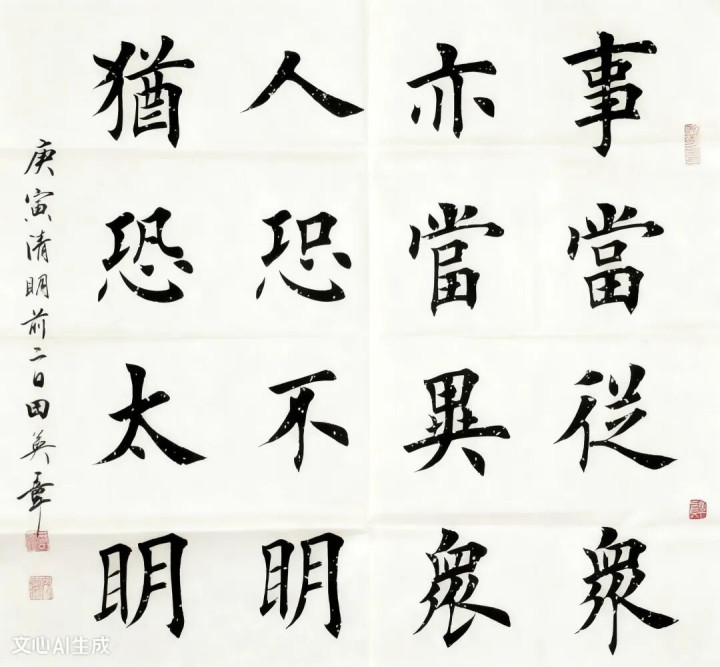 事當從眾
亦當異眾
人恐不明
猶恐太明
庚寅清明前二日田英章
文心AI生成